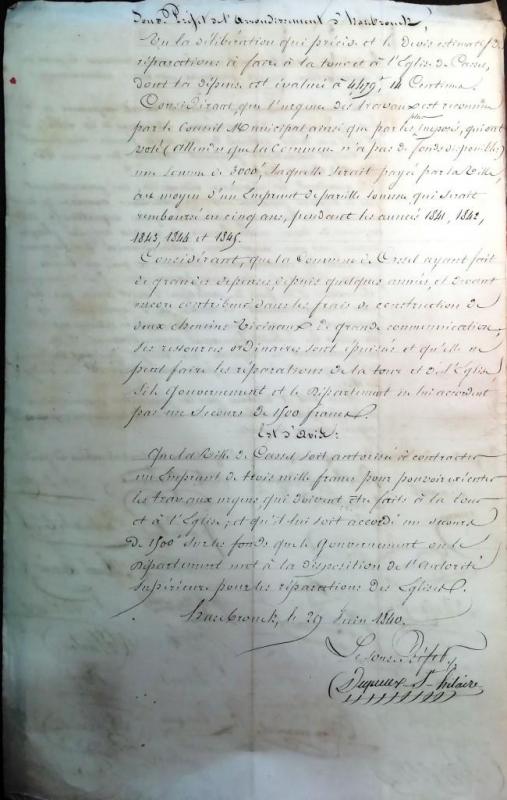 Sous Préfet de l'Arrondissement d'Hazebrouck,
Vu la délibération qui précède et le devis estimatif des
réparations à faire à la tour et à l'Eglise de Cassel,
dont la dépense est évaluée à 4,479f, 14 Centimes.
Considérant, que l'urgence des travaux est reconnue
par le Conseil Municipal ainsi que par les plus Imposés, qui ont
voté (attendu que la Commune n'a pas de fonds disponibles)
une somme de 3000f, laquelle serait payée par la Ville,
au moyen d'un Emprunt de pareille somme, qui serait
remboursé en cinq ans, pendant les années 1841, 1842,
1843, 1844 et 1845.
Considérant, que la Commune de Cassel ayant fait
de grandes dépenses, depuis quelques années, et devant
encore contribuer dans les frais de construction de
deux chemins Vicinaux de grande communication,
ses ressources ordinaires sont épuisées et qu'elle ne
peut faire les réparations de la tour et de l'Eglise,
si le Gouvernement et le Département ne lui accordent
pas un secours de 1500 francs.
Est d'Avis:
Que la Ville de Cassel soit autorisée à contracter
un Emprunt de trois mille francs pour pouvoir exécuter
les travaux urgens qui doivent être faits à la tour
et à l'Eglise; et qu'il lui soit accordé un secours
de 1500f sur les fonds que le Gouvernement ou le
Département met à la disposition de l'Autorité
supérieure pour les réparations des Eglises.
Hazebrouck, le 29 Juin 1840.
Le Sous Préfet,
St hilaire